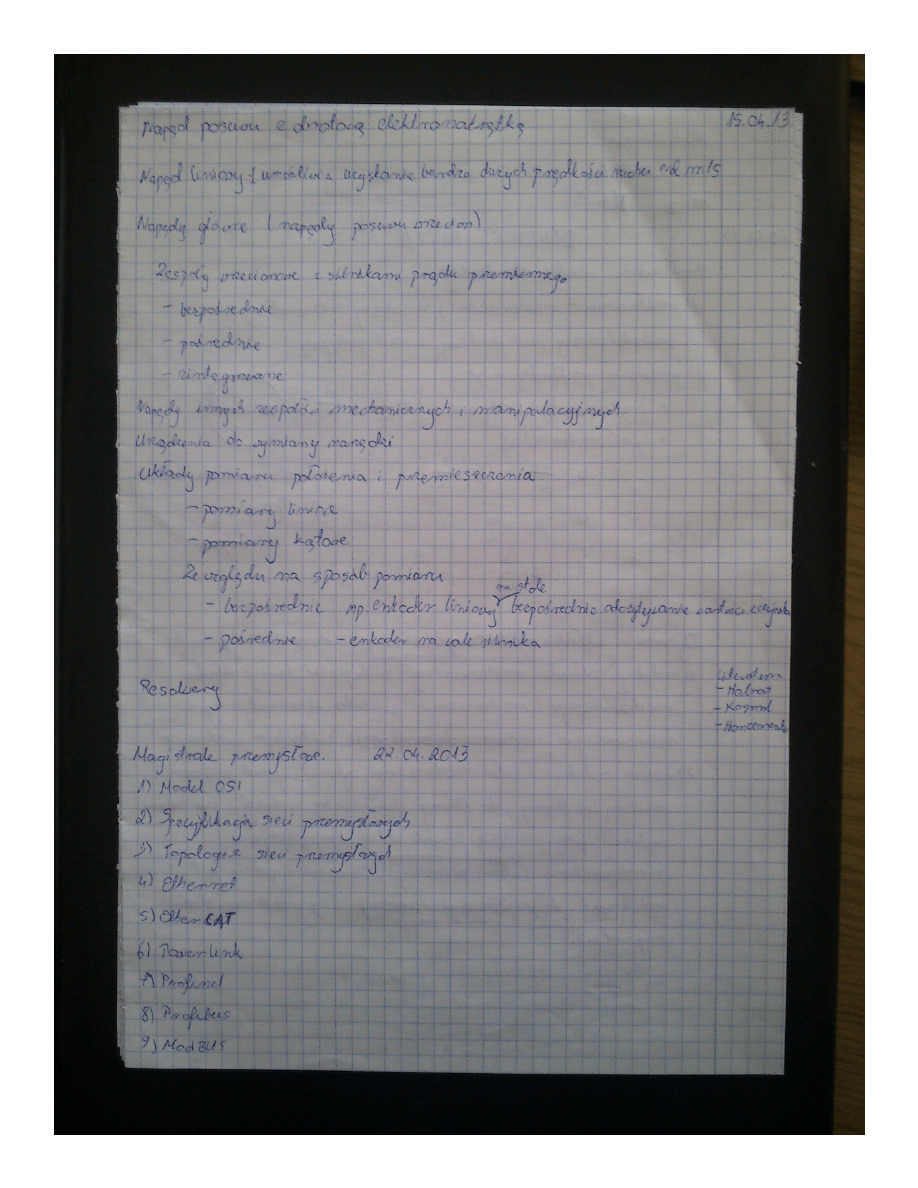 Napęd posuwu z dwoma elektronakrętką 15.04.13
Napęd liniowy: umożliwia uzyskanie bardzo dużych prędkości ruchu m/s
Napędy główne (napędy posuwu wrzecion)
Zespoły wrzecionowe z silnikami prądu przemiennego
- bezpośrednie
- pośrednie
- zintegrowane
Napędy innych zespołów mechanicznych i manipulacyjnych
Urządzenia do wymiany narzędzi
Układy pomiaru położenia i przemieszczenia
- pomiary liniowe
- pomiary kątowe
Ze względu na sposób pomiaru
na stole
- bezpośrednie np. enkoder liniowy bezpośrednio odczytywanie wartości
- pośrednie - enkoder na wale silnika
Resolwery
- Kosmol
- Honczarenko
Magistrale przemysłowe. 22.04.2013
1) Model OSI
2) Specyfikacja sieci przemysłowych
3) Topologie sieci przemysłowych
4) Ethernet
5) EtherCAT
6) PowerLink
7) Profinet
8) Profibus
9) ModBUS